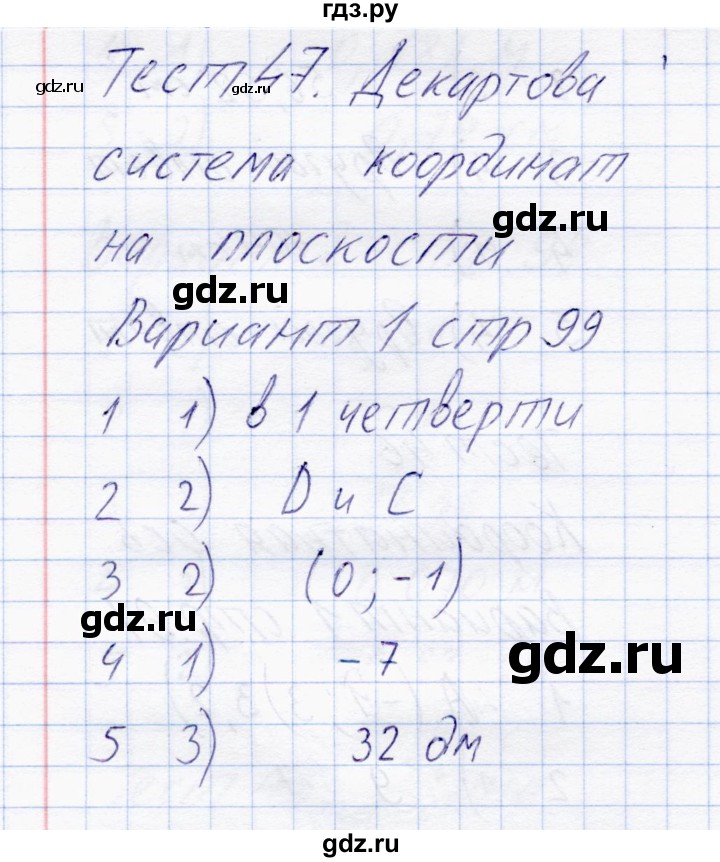 гдз.ру
Тест 47. Декартова
gdz.ru
gdz.ru
система координат
gdz.ru
на плоскости
gdz.ru
Вариант 1 стр 99
1 1) в 1 четверти
2 2) D и C
3 2) (0; -1)
gdz.ru
gdz.ru
4 1) -7
5 3) 32 дм
gdz.ru